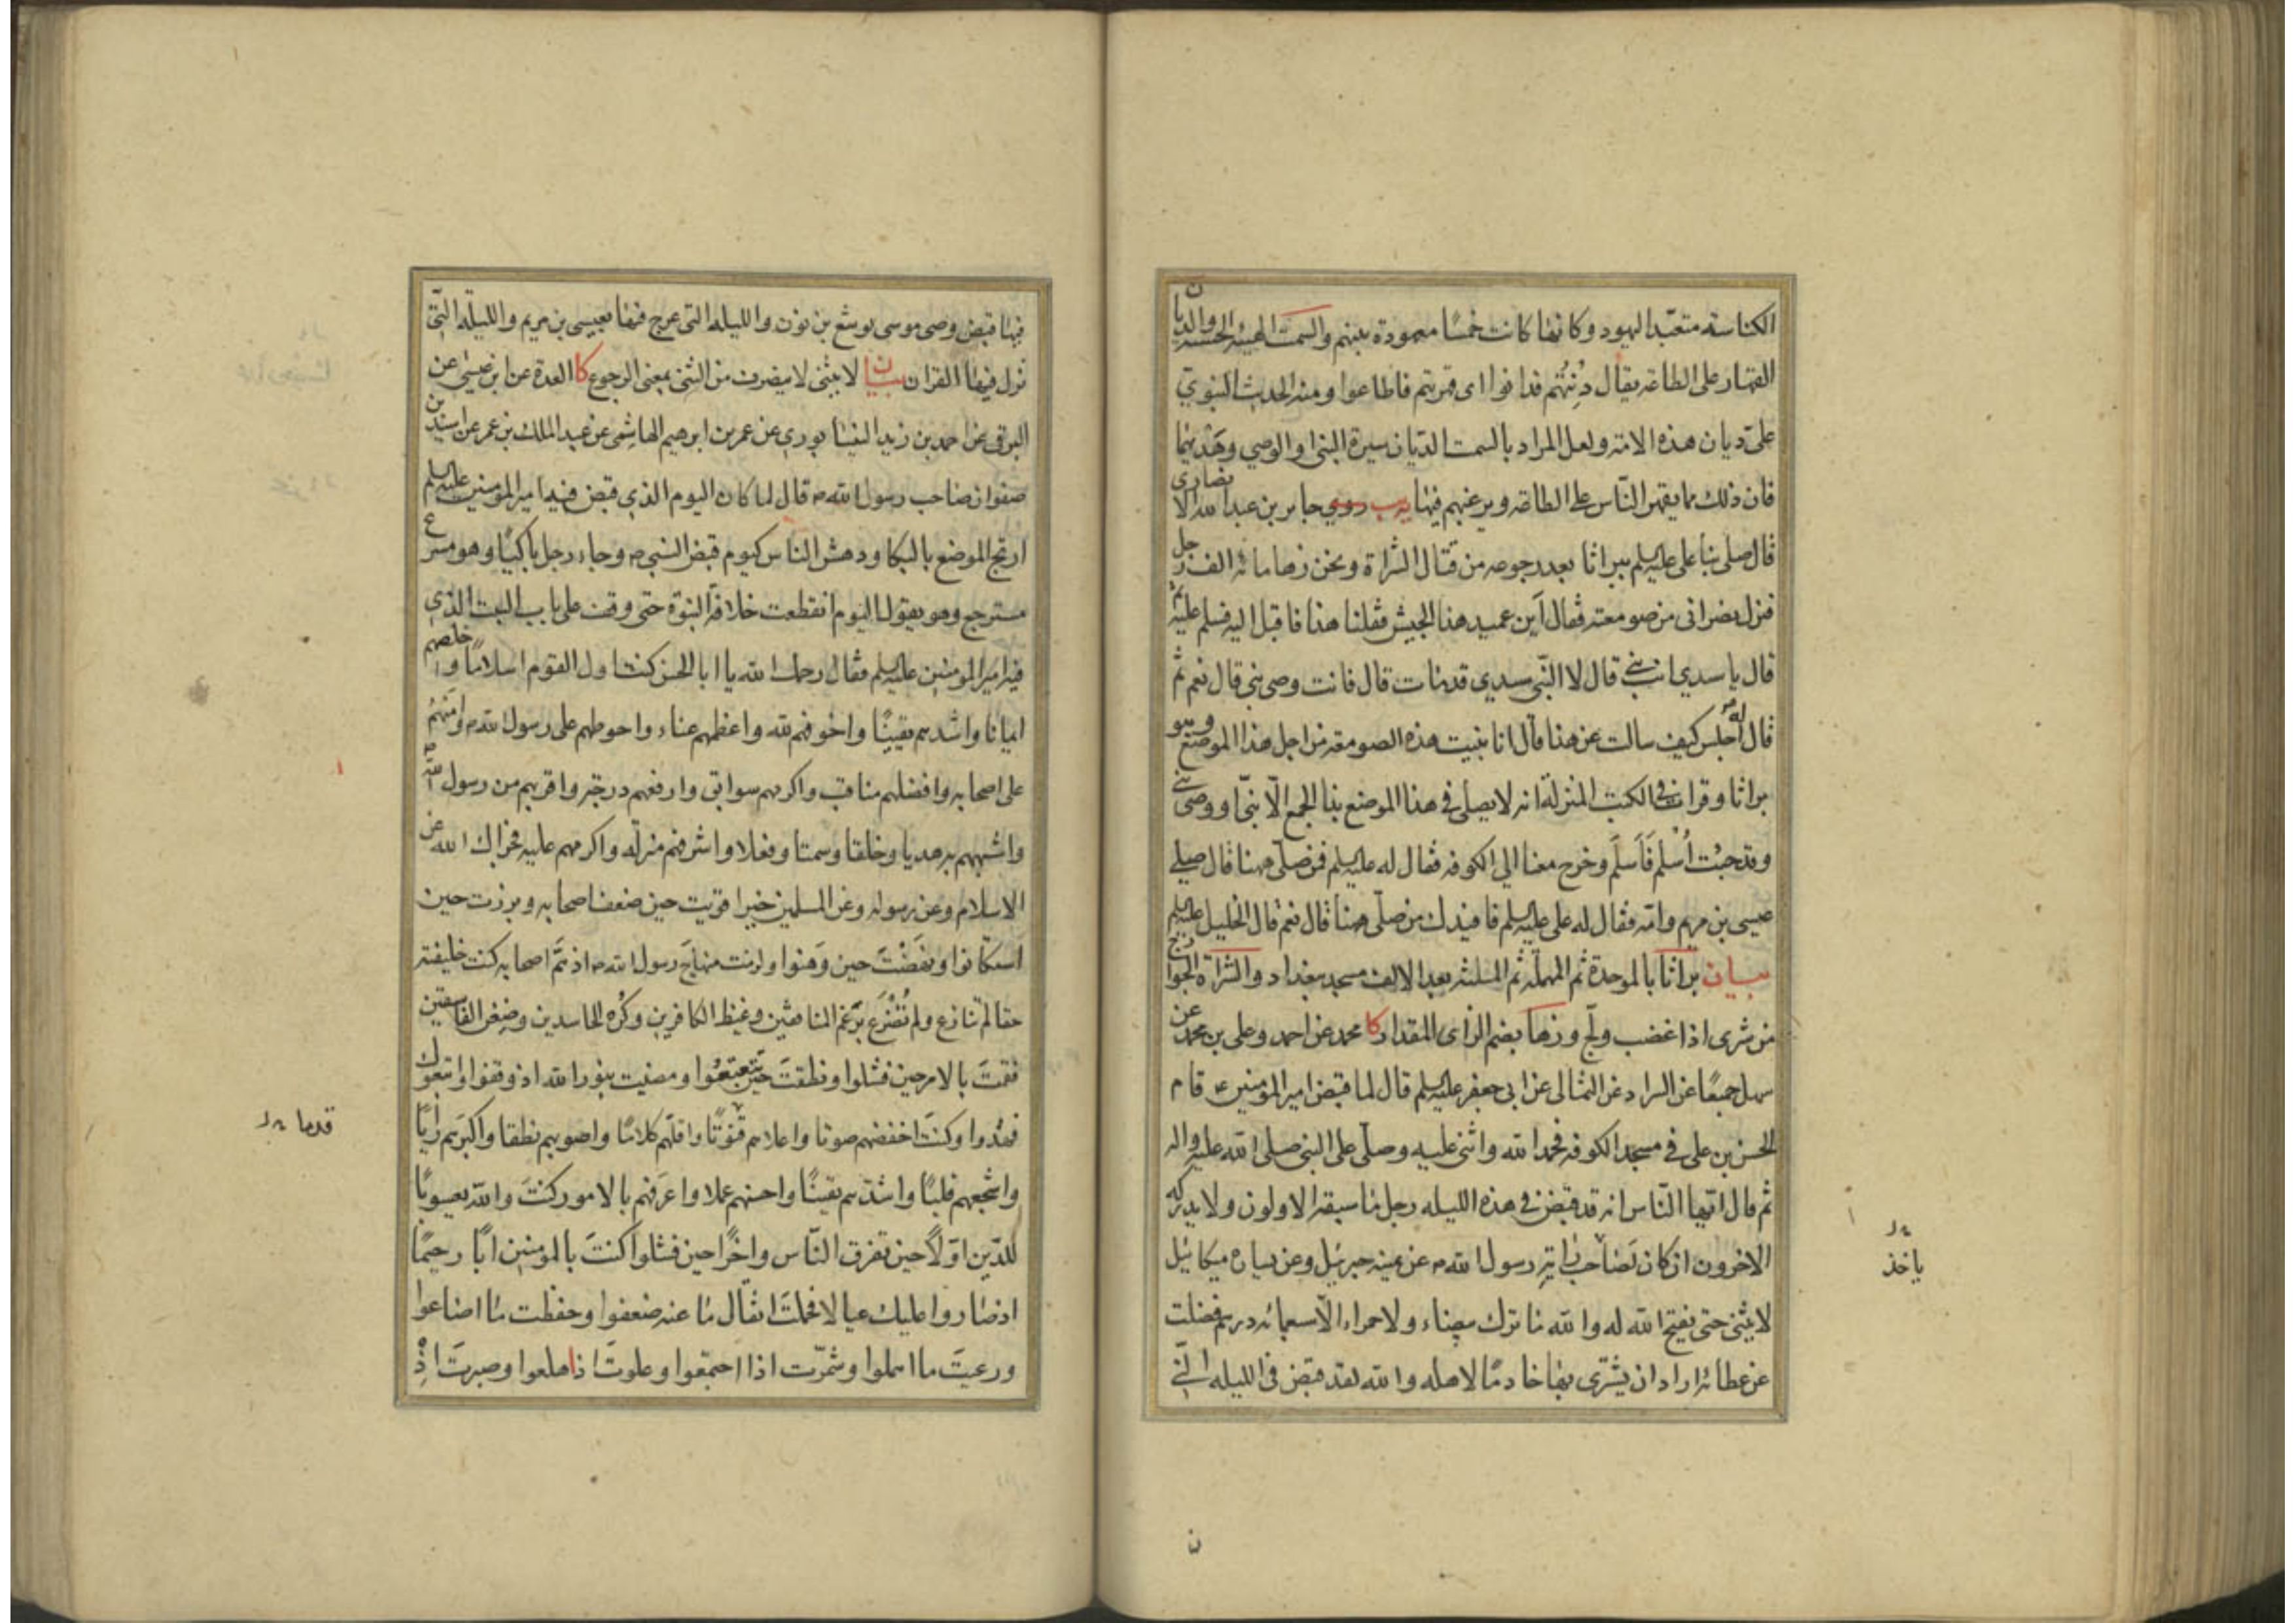 الكناسة متعبد اليهود وكانها كانت خمسا معهودة بينهم والسمت الهيئة الحسنة والديان
القهار على الطاعة يقال دنتهم فدانوا اى قهرتهم فاطاعوا ومنه الحديث النبوي
علىّ ديان هذه الامة ولعل المراد بالسمت الديان سيرة النبي او الوصي وهديهما
فان ذلك مما يقهر الناس على الطاعة ويرغبهم فيها يب روى جابر بن عبد الله الانصارى
قال صلى بنا على عليه السلم ببراثا بعد رجوعه من قتال الشراة ونحن زهاء مائة الف رجل
فنزل نصرانى من صومعته فقال اين عميد هذا الجيش فقلنا هذا فاقبل اليه فسلم عليه ثم
قال يا سيدي انت نبي قال لا النبي سيدي قد مات قال فانت وصى نبى قال نعم ثم
قال له اجلس كيف سالت عن هذا قال انا بنيت هذه الصومعة من اجل هذا الموضع وهو
براثا وقرات في الكتب المنزلة انه لا يصلى في هذا الموضع بذا الجمع الا نبي او وصى نبي
وقد جئت اُسلم فَاَسلَم وخرج معنا الى الكوفة فقال له عليه السلم فمن صلّى ههنا قال صلى
عيسى بن مريم وامّه فقال له على عليه السلم فافيدك من صلّى هنا قال نعم قال الخليل عليه السلم
بيان براثا بالموحدة ثم المهملة ثم المثلثة بعد الالف مسجد ببغداد والشراة الخوارج
من شرى اذا غضب ولجّ وزها بضم الزاى المقدار كا محمد عن احمد وعلى بن محمد عن
سهل جميعًا عن السراد عن الثمالى عن ابى جعفر عليه السلم قال لما قبض امير المؤمنين ع قام
الحسن بن على في مسجد الكوفة فحمد الله واثنى عليه وصلّى على النبي صلى الله عليه واله
ثم قال ايّها النّاس انه قد قبض في هذه الليلة رجل ما سبقه الاولون ولا يدركه
الاخرون ان كان لصاحب راية رسول الله ص عن يمينه جبرئيل وعن يساره ميكائيل
لا ينثنى حتى يفتح الله له والله ما ترك بيضاء ولا حمراء الّا سبعمائة درهم فضلت
عن عطائه اراد ان يشترى بها خادمًا لاهله والله لقد قبض فى الليلة التي
ياخذ
ن
فيها قبض وصى موسى يوشع بن نون والليلة التى عرج فيها بعيسى بن مريم والليلة التى
نزل فيها القران بيان لا ينثنى لا ينصرف من الثنى بمعنى الرجوع كا العدة عن ابن عيسى عن
البرقى عن احمد بن زيد النيسابورى عن عمر بن ابرهيم الهاشمى عن عبد الملك بن عمر عن اسيد بن
صفوان صاحب رسول الله ص قال لما كان اليوم الذى قبض فيه امير المومنين عليه السلم
ارتج الموضع بالبكا ودهش الناس كيوم قبض النبي ص وجاء رجل باكيًا وهو مسرع
مسترجع وهو يقول اليوم انقطعت خلافة النبوّة حتى وقف على باب البيت الذى
فيه امير المومنين عليه السلم فقال رحمك الله يا ابا الحسن كنت اول القوم اسلامًا واخلصهم
ايمانا واشدهم يقينًا واخوفهم لله واعظمهم عناء واحوطهم على رسول الله ص وامَنهُم
على اصحابه وافضلهم مناقب واكرمهم سوابق وارفعهم درجة واقربهم من رسول الله ص
واشبههم به هديا وخلقا وسمتا وفعلا واشرفهم منزلة واكرمهم عليه فجزاك الله عن
الاسلام وعن رسوله وعن المسلمين خيرا قويت حين ضعف اصحابه وبرزت حين
استكانوا ونهَضْتَ حين وَهنوا ولزمت منهاجَ رسول الله ص اذ همَّ اصحابه كنت خليفته
حقا لم تنازع ولم تُضْرَع برَغم المنافقين وغيظ الكافرين وكُره الحاسدين وصِغر الفاسقين
فقمتَ بالامر حين فشلوا ونطقتَ حين تتعتعُوا ومضيت بنور الله اذ وقفوا واتبعوك
فهُدوا وكنت اخفضهم صوتا واعلاهم قنوتًا واقلّهم كلامًا واصوبهم نطقا واكبرهم رأيًا
واشجعهم قلبًا واشدّهم يقينًا واحسنهم عملا واعرَفهم بالامور كنتَ والله يعسوبًا
للدّين اوّلًا حين تفرق النّاس واخرًا حين فشلوا كنتَ بالمومنين ابًا رحيمًا
اذ صاروا عليك عيالا فحملتَ اثقال ما عنه ضعفوا وحفظت ما اضاعوا
ورعيتَ ما اهملوا وشمّرت اذا اجتمعوا وعلوتَ اذ هلعوا وصبرتَ اذ
قدما